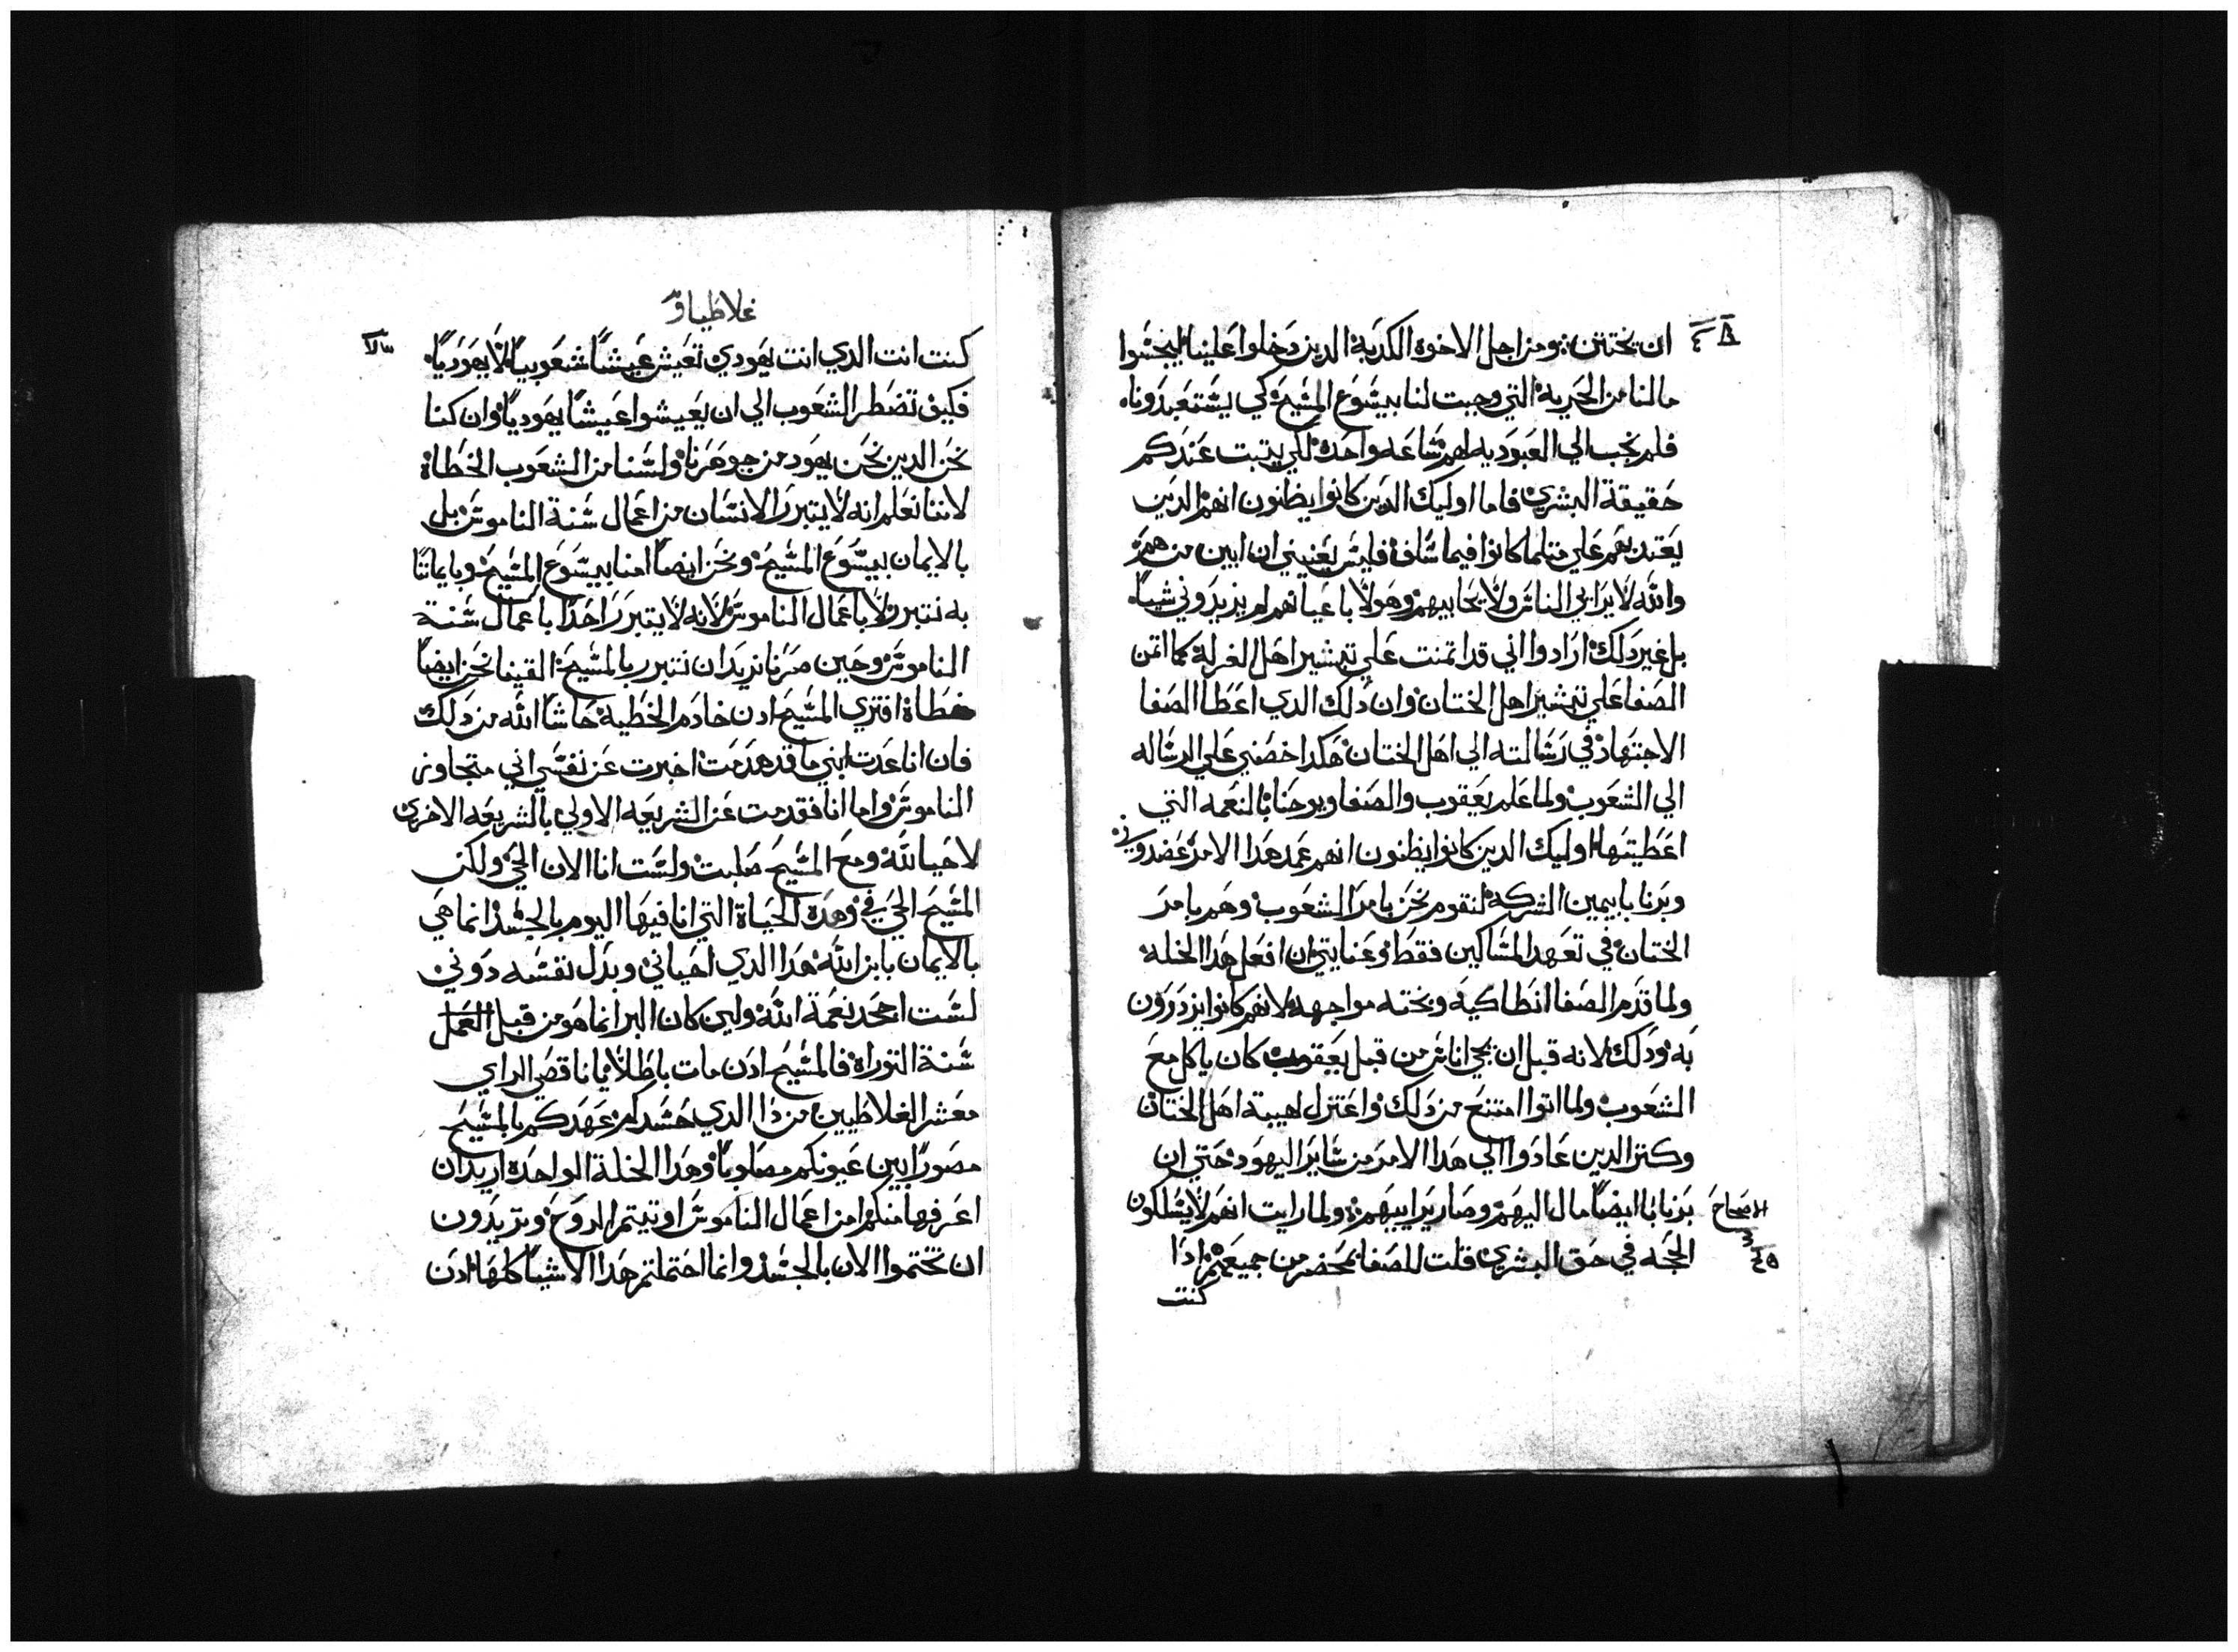 ان يختتن ومن اجل الاخوه الكدبة الدين دخلوا علينا ليجسوا
مالنا من الحرية التي وجبت لنا بيسوع المسيح كي يستعبدونا
فلم نجب الي العبوديه لهم ساعه واحدة لكي يتبت عندكم
حقيقة البشري فاما اوليك الدين كانوا يظنون انهم الدين
يعتد بهم علي متلما كانوا فيما سلف فليس يعنيني ان ابين من هم
والله لا يرايي الناس ولا يحابيهم وهولا باعيانهم لم يزيدوني شيا
بل غير دلك ارادوا اني قد اتمنت علي تبشير اهل الغرلة كما اتمن
الصفا علي تبشير اهل الختان وان دلك الدي اعطا الصفا
الاجتهاد في رسالته الي اهل الختان هكدا خصني علي الرساله
الي الشعوب ولما علم يعقوب والصفا ويوحنا بالنعمه التي
اعطيتها اوليك الدين كانوا يظنون انهم عمد هدا الامر عضدوني
وبرنابا بيمين الشركه لنقوم نحن بامر الشعوب وهم بامر
الختان في تعهد المساكين فقط وعنايتي ان افعل هدا الخله
ولما قدم الصفا انطاكيه وبخته مواجهة لانهم كانوا يزدرون
به ودلك لانه قبل ان يجي اناس من قبل يعقوب كان ياكل مع
الشعوب ولما اتوا امتنع من دلك واعتزل لهيبة اهل الختان
وكتر الدين عادوا الي هدا الامر من ساير اليهود حتي ان
برنابا ايضا مال اليهم وصار يراييهم ولما رايت انهم لا يسلكون
الاصحاح
الحجه في حق البشري قلت للصفا بمحضر من جميعهم ادا
كنت
غلاطياو
كنت انت الدي انت يهودي تعيش عيشا شعوبيا لا يهوديا
فكيف تضطر الشعوب الي ان يعيشوا عيشا يهوديا وان كنا
نحن الدين نحن يهود من جوهرنا ولسنا من الشعوب الخطاة
لاننا نعلم انه لا يتبرر الانسان من اعمال سنة الناموس بل
بالايمان بيسوع المسيح ونحن ايضا امنا بيسوع المسيح وبايماننا
به نتبرر لا باعمال الناموس لانه لا يتبرر احدا باعمال سنة
الناموس وحين صرنا نريد ان نتبرر بالمسيح القينا نحن ايضا
خطاة افتري المسيح ادن خادم الخطية حاشا الله من دلك
فان انا عدت ابني ما قد هدمت اخبرت عن نفسي اني متجاوز
الناموس واما انا فقد مت عن الشريعه الاولي بالشريعه الاخري
لاحيا لله ومع المسيح صلبت ولست انا الان الحي ولكن
المسيح الحي في وهدة الحياة التي انا فيها اليوم بالجسد انما هي
بالايمان بابن الله هدا الدي احياني وبدل نفسه دوني
لست اجحد نعمة الله ولين كان البر انما هو من قبل العمل
سنة التوراة فالمسيح ادن مات باطلا يا ناقصي الراي
معشر الغلاطيين من دا الدي حسدكم عهدكم بالمسيح
مصورا بين عيونكم مصلوبا وهدا الخلة الواحدة اريد ان
اعرفها منكم امن اعمال الناموس اوتيتم الروح وتريدون
ان تختموا الان بالجسد وانما احتملتم هدا الاشيا كلها ادن